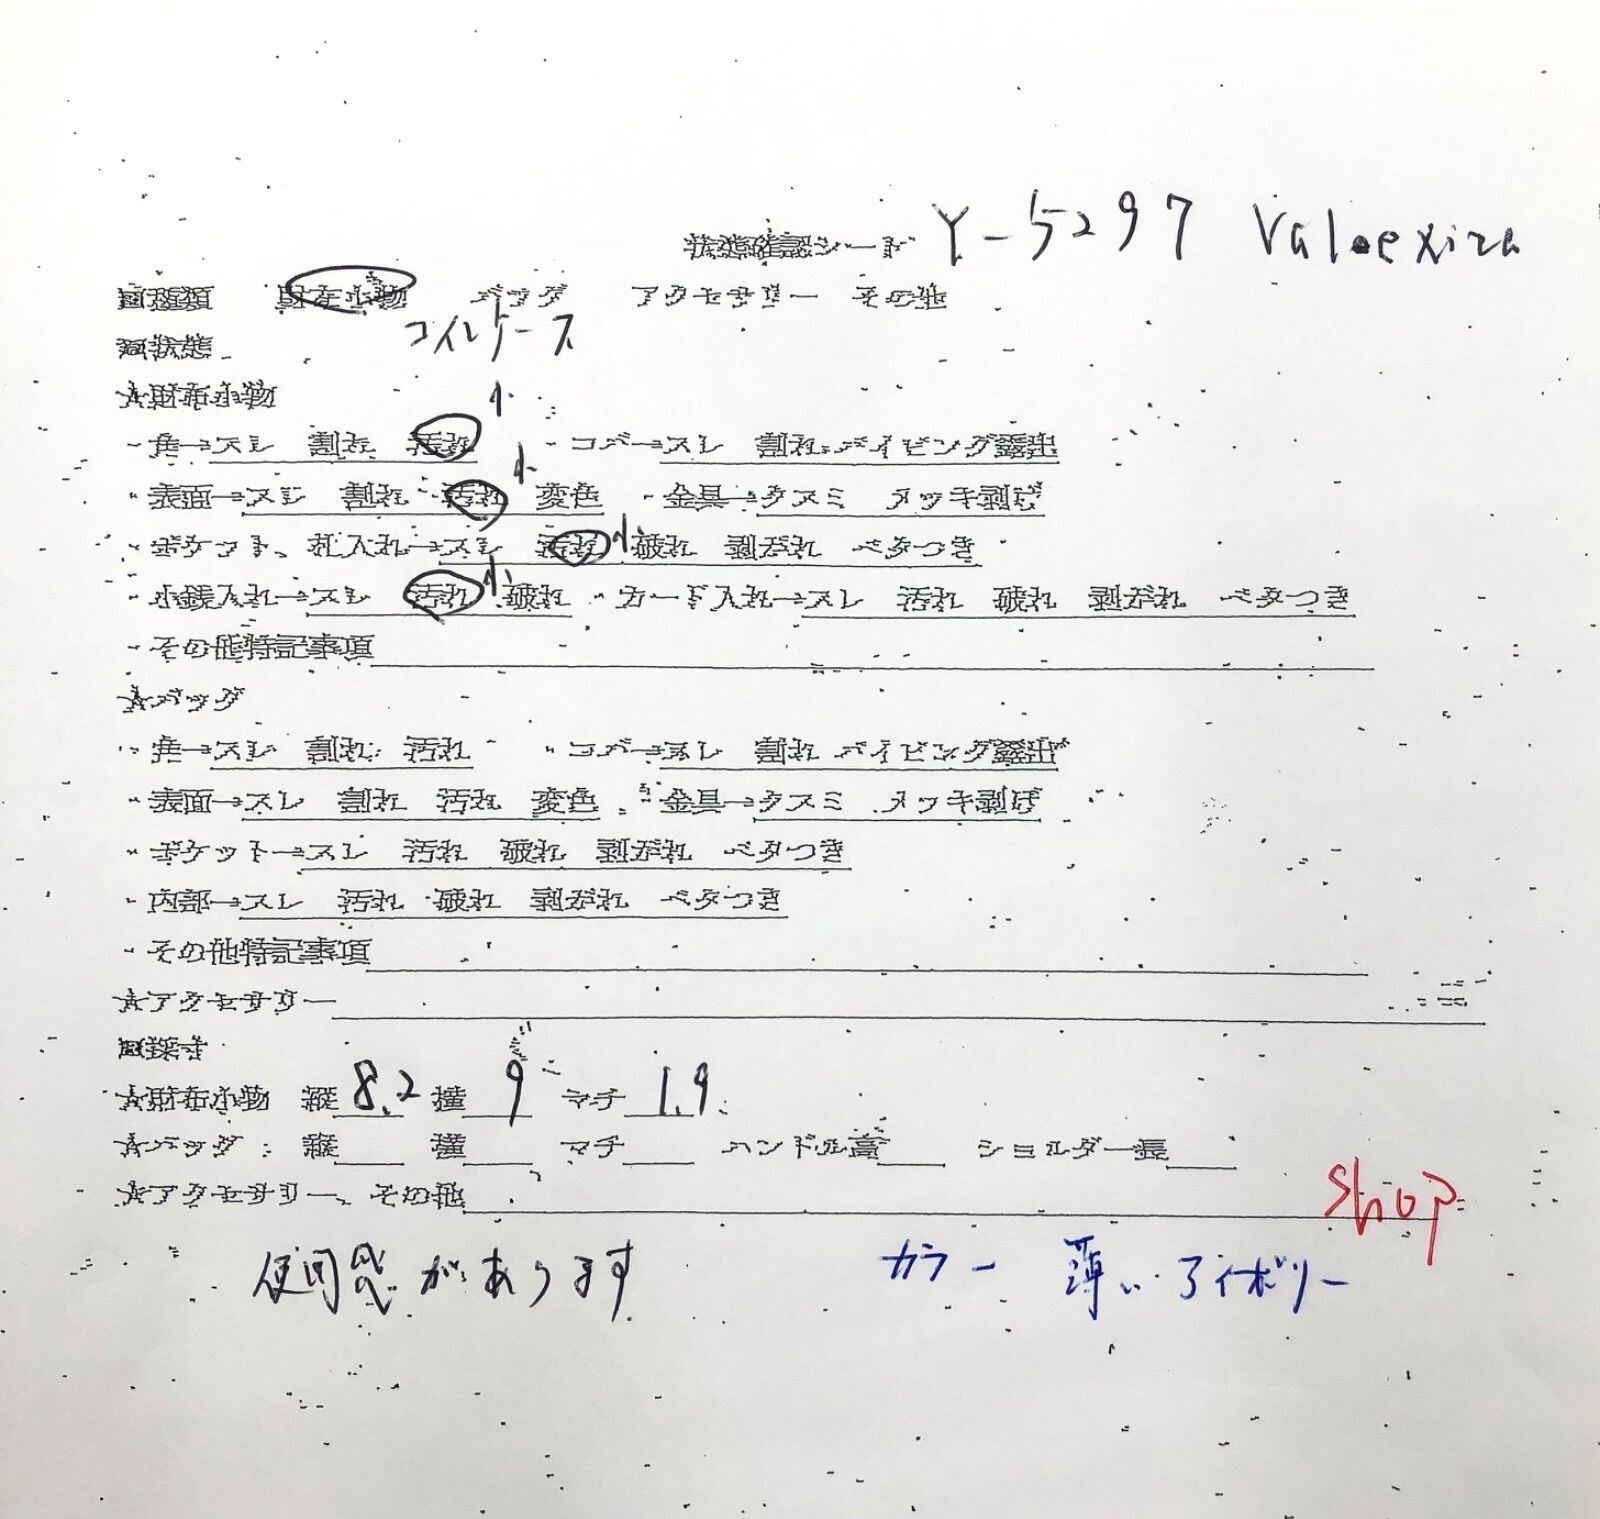 状態確認シート Y-5297 Valoexira
■種類 財布小物 バッグ アクセサリー その他
コイレケース
■状態
☆財布小物
小
・角→スレ 割れ 汚れ ・コバ→スレ 割れ パイピング露出
小
・表面→スレ 割れ 汚れ 変色 ・金具→クスミ メッキ剥げ
・ポケット、札入れ→スレ 汚れ 小 破れ 剥がれ ベタつき
・小銭入れ→スレ 汚れ 小 破れ ・カード入れ→スレ 汚れ 破れ 剥がれ ベタつき
・その他特記事項
☆バッグ
・角→スレ 割れ 汚れ ・コバ→スレ 割れ パイピング露出
・表面→スレ 割れ 汚れ 変色 ・金具→クスミ メッキ剥げ
・ポケット→スレ 汚れ 破れ 剥がれ ベタつき
・内部→スレ 汚れ 破れ 剥がれ ベタつき
・その他特記事項
☆アクセサリー
■採寸
☆財布小物 縦 8.2 横 9 マチ 1.9
☆バッグ 縦 横 マチ ハンドル高 ショルダー長
☆アクセサリー、その他
shop
使用感があります カラー 薄いアイボリー